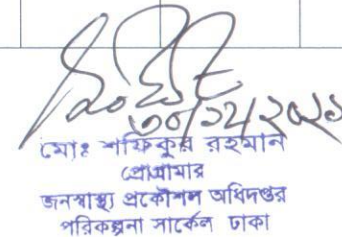 ৩০/১২/২০২১
মোঃ শফিকুর রহমান
প্রোগ্রামার
জনস্বাস্থ্য প্রকৌশল অধিদপ্তর
পরিকল্পনা সার্কেল ঢাকা